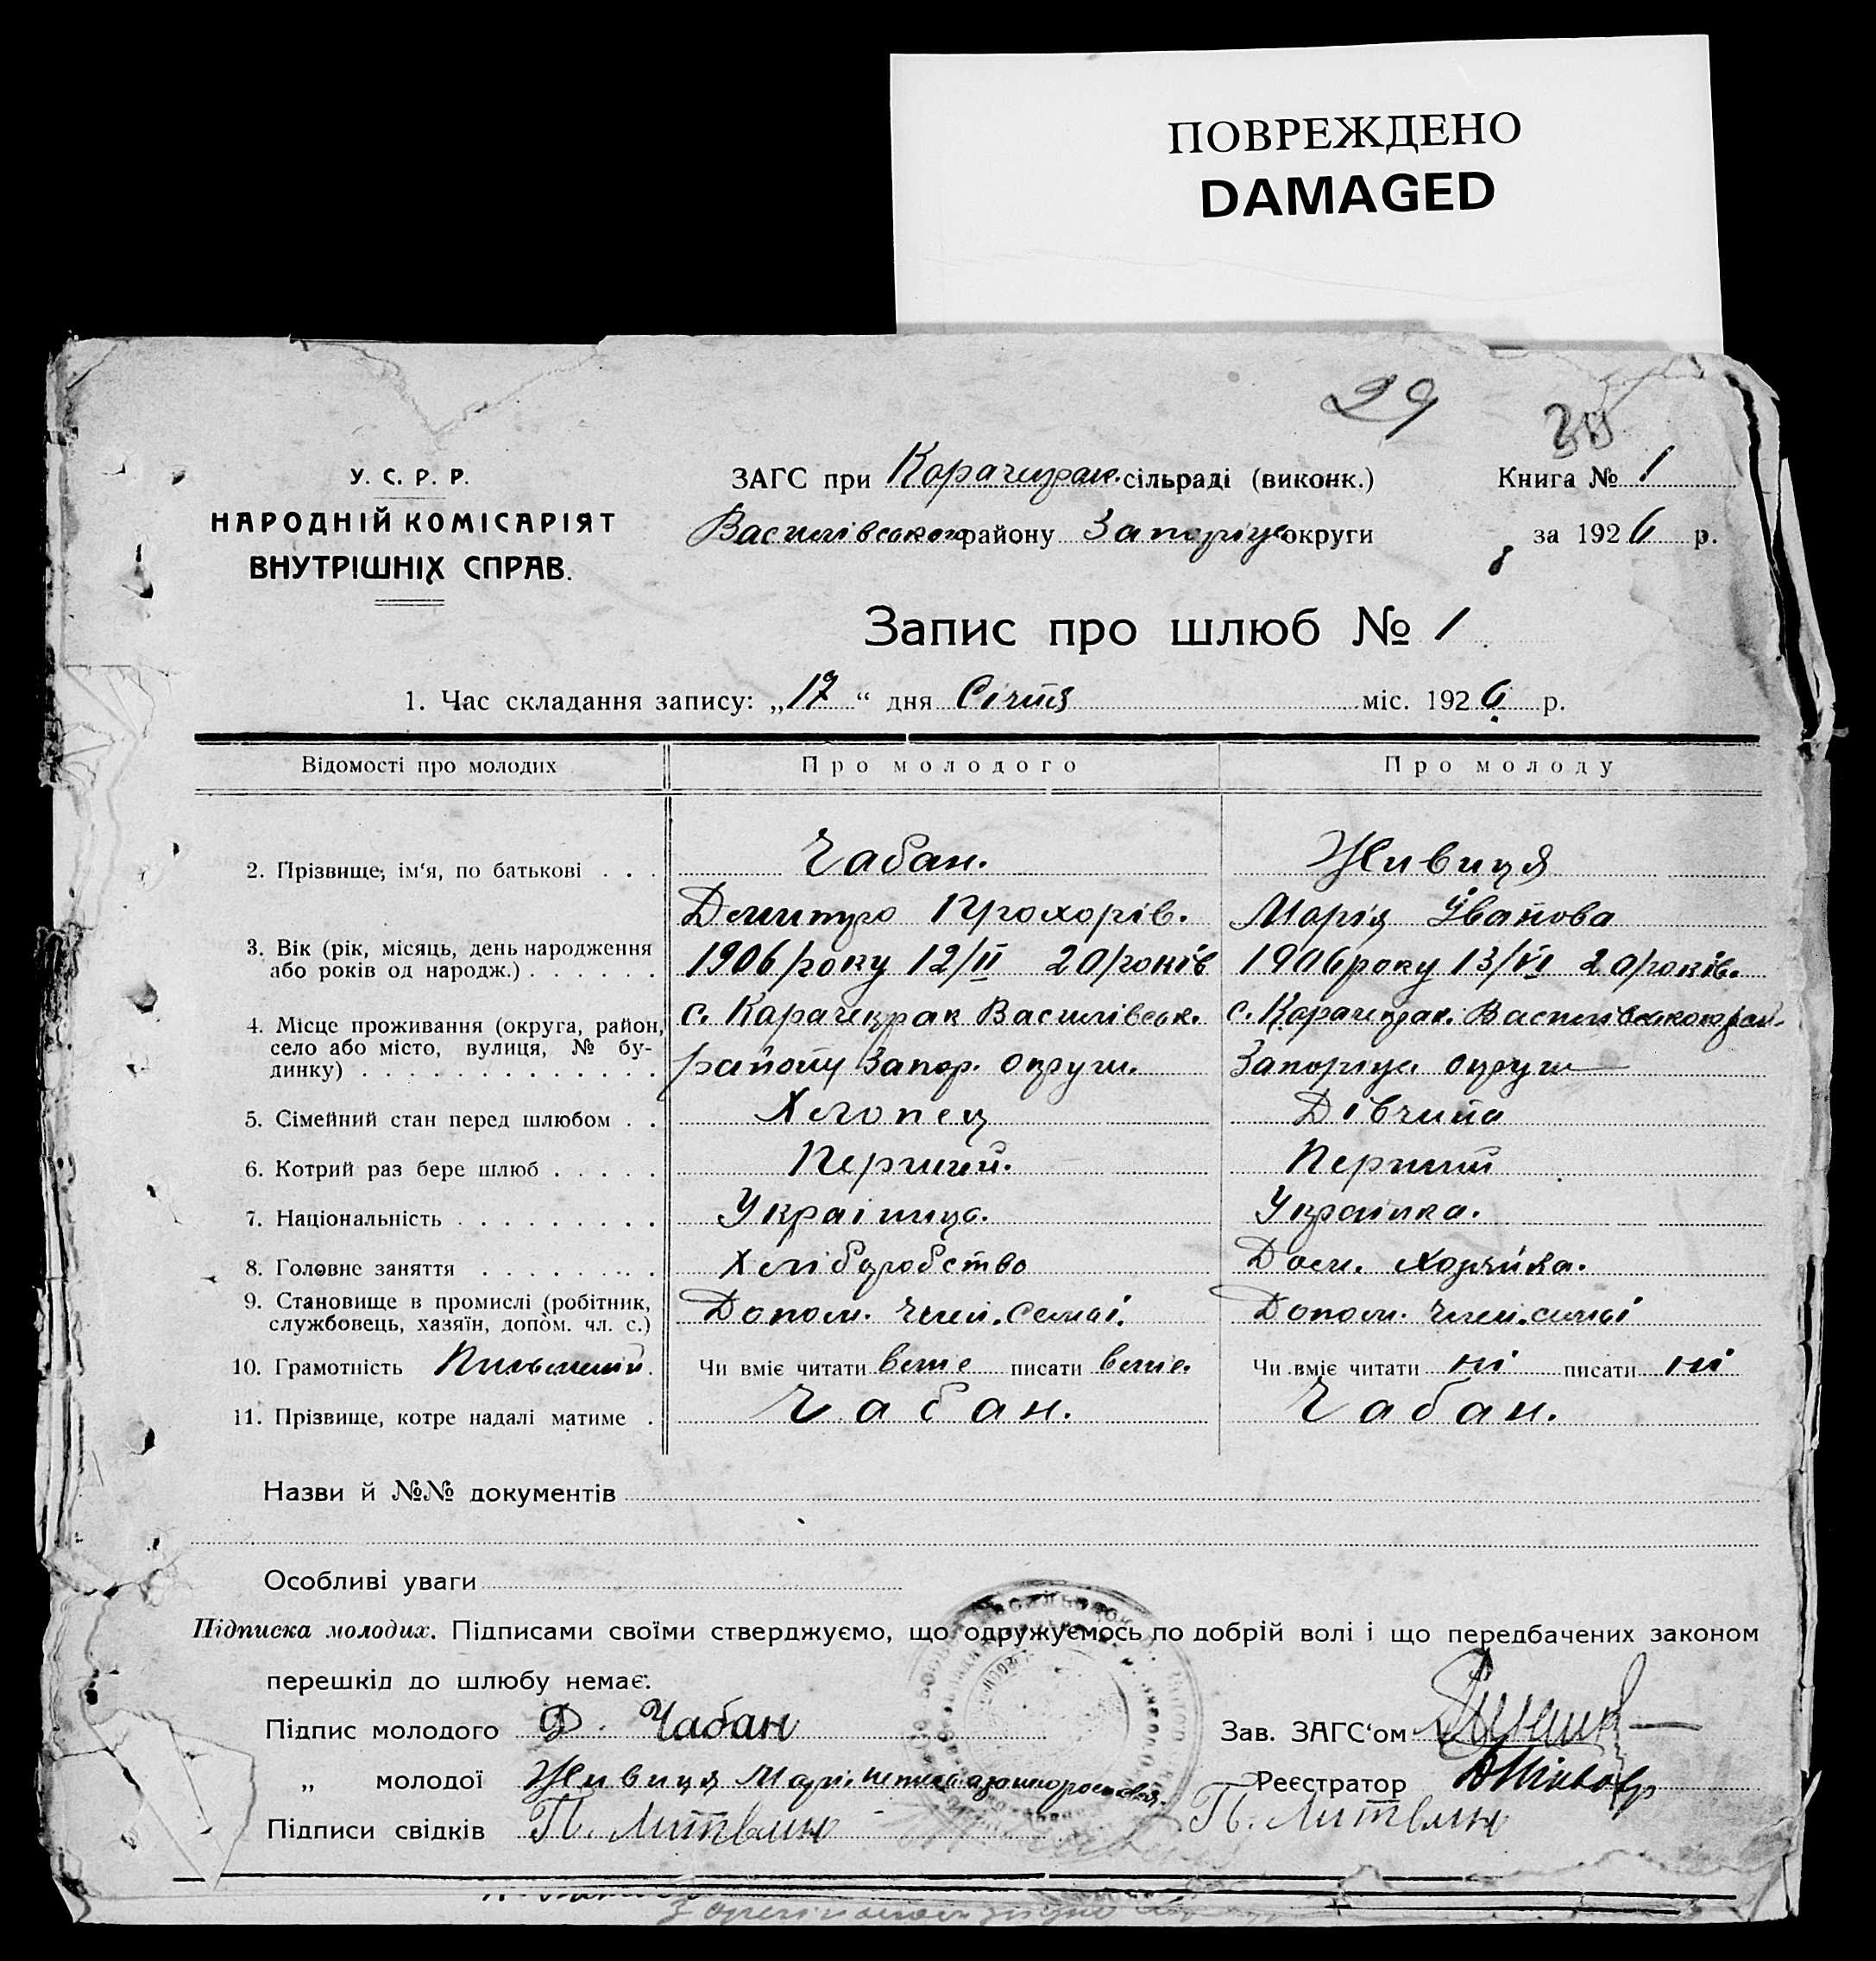 ПОВРЕЖДЕНО
DAMAGED
29
У. С. Р. Р.
НАРОДНІЙ КОМІСАРІЯТ
ВНУТРІШНІХ СПРАВ.
ЗАГС при Карачекрак. сільраді (виконк.)
Василівського району Запоріцьк округи
Книга № 1
за 1926 р.
Запис про шлюб № 1
1. Час складання запису: „17“ дня Січня міс. 1926 р.
Відомості про молодих Про молодого Про молоду
2. Прізвище, ім‘я, по батькові . . . Чабан. Живиця
Дмитро Прохорів. Марія Іванова
3. Вік (рік, місяць, день народження
або років од народж.) . . . . . . 1906 року 12/II 20 років 1906 року 13/VI 20 років.
4. Місце проживання (округа, район,
село або місто, вулиця, № бу-
динку) . . . . . . . . . . . . .
с. Карачекрак Василівськ. с. Карачекрак. Василівського рай.
району Запор. округи. Запоріцьк округи
5. Сімейний стан перед шлюбом . . Хлопець Дівчина
6. Котрий раз бере шлюб . . . . . Перший. Перший
7. Національність . . . . . . . . . Українець. Українка.
8. Головне заняття . . . . . . . . Хліборобство Дом. хозяйка.
9. Становище в промислі (робітник,
службовець, хазяїн, допом. чл. с.) Допом. член. семьі. Допом. член. семьі
10. Грамотність Письменний. Чи вміє читати вміє писати вміє. Чи вміє читати ні писати ні
11. Прізвище, котре надалі матиме . Чабан. Чабан.
Назви й №№ документів
Особливі уваги
Підписка молодих. Підписами своїми стверджуємо, що одружуємось по добрій волі і що передбачених законом
перешкід до шлюбу немає.
Підпис молодого Д. Чабан
Зав. ЗАГС‘ом
„ молодої Живиця Марі.
Реєстратор
Підписи свідків П. Литвин П. Литвин